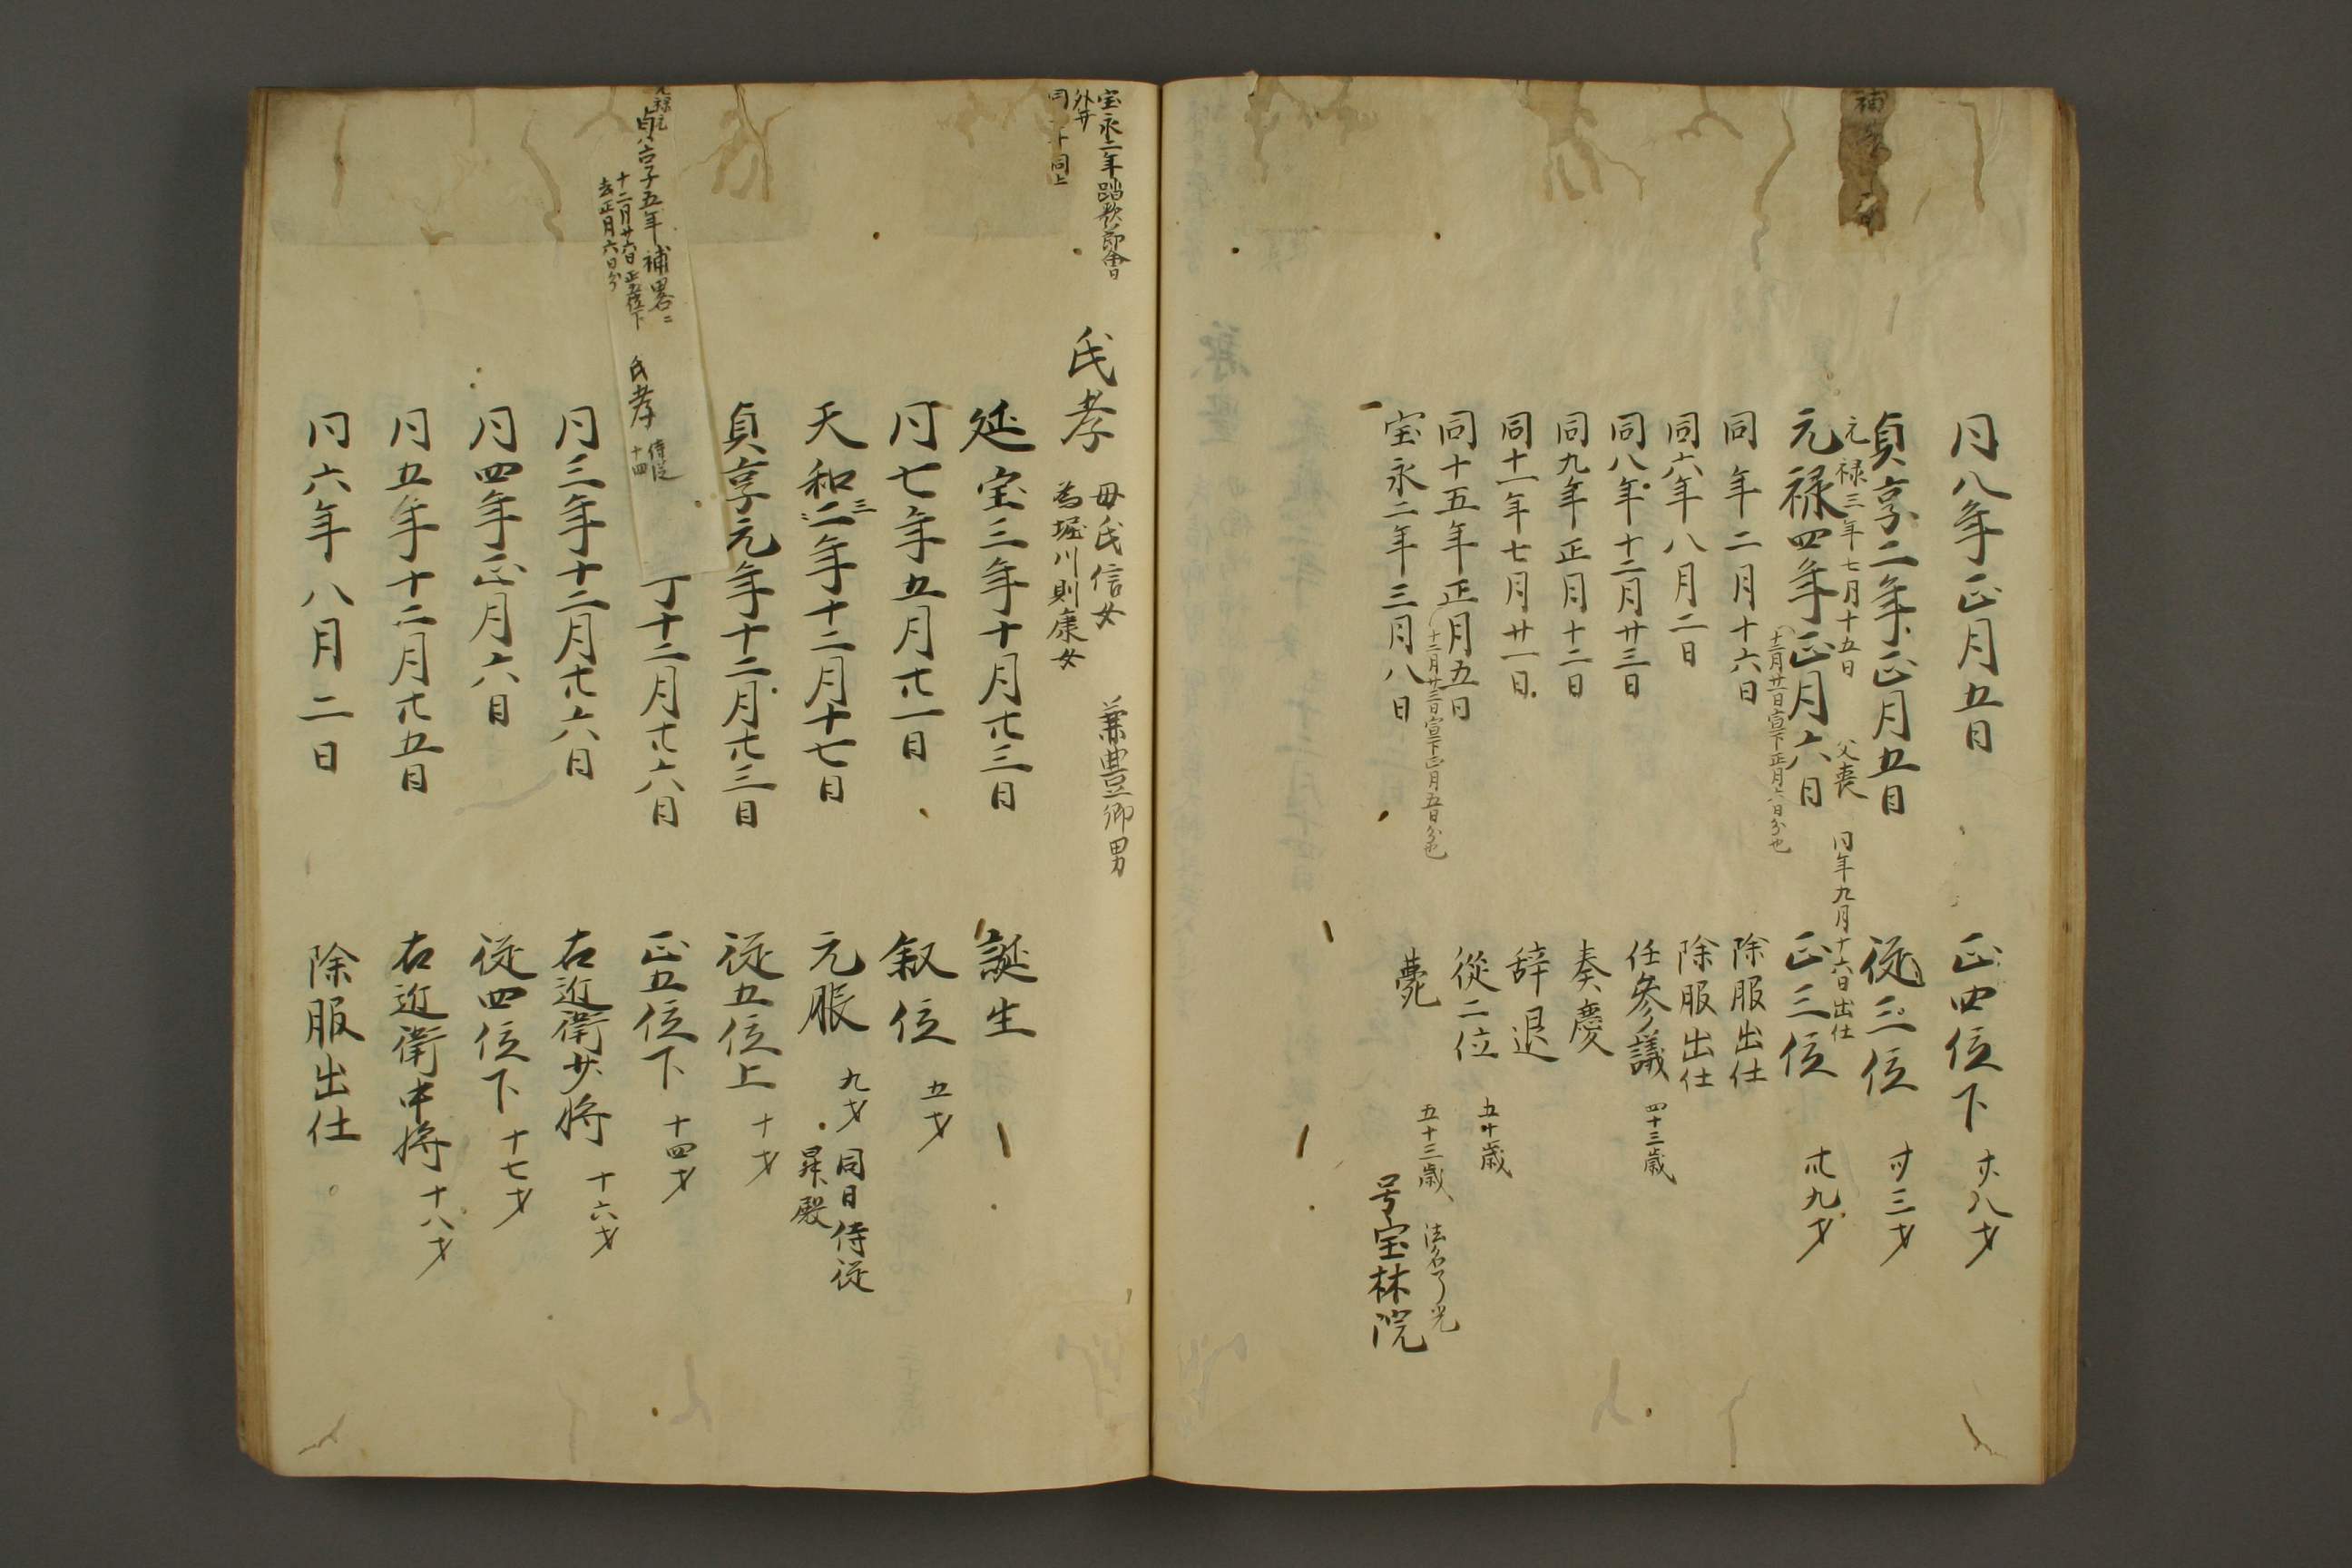 同八年正月五日　正四位下　廿八才
貞享二年正月五日　従三位　卅三才
元禄三年七月十五日　父喪　同年九月十六日出仕
元禄四年正月六日　正三位　卅九才
十二月廿一日宣下正月六日分也
同年二月十六日　除服出仕
同六年八月二日　除服出仕
同八年十二月廿三日　任参議　四十三歳
同九年正月十二日　奏慶
同十一年七月廿一日　辞退
同十五年正月五日　従二位　五十歳
十二月廿三日宣下正月五日分也
宝永二年三月八日　薨　五十三歳　法名了光
号宝林院
宝永二年踏歌節会
外弁
同上
氏孝　母氏信女　兼豊卿男
為堀川則康女
延宝三年十月廿三日　誕生
同七年五月廿一日　叙位　五才
天和二三年十二月十七日　元服　九才　同日侍従
昇殿
貞享元年十二月廿三日　従五位上　十才
元禄元
貞享五年補畧ニ　氏孝　侍従　十四
十二月廿六日正五位下
去正月六日分
丁十二月廿六日　正五位下　十四才
同三年十二月廿六日　右近衛少将　十六才
同四年正月六日　従四位下　十七才
同五年十二月廿五日　右近衛中将　十八才
同六年八月二日　除服出仕